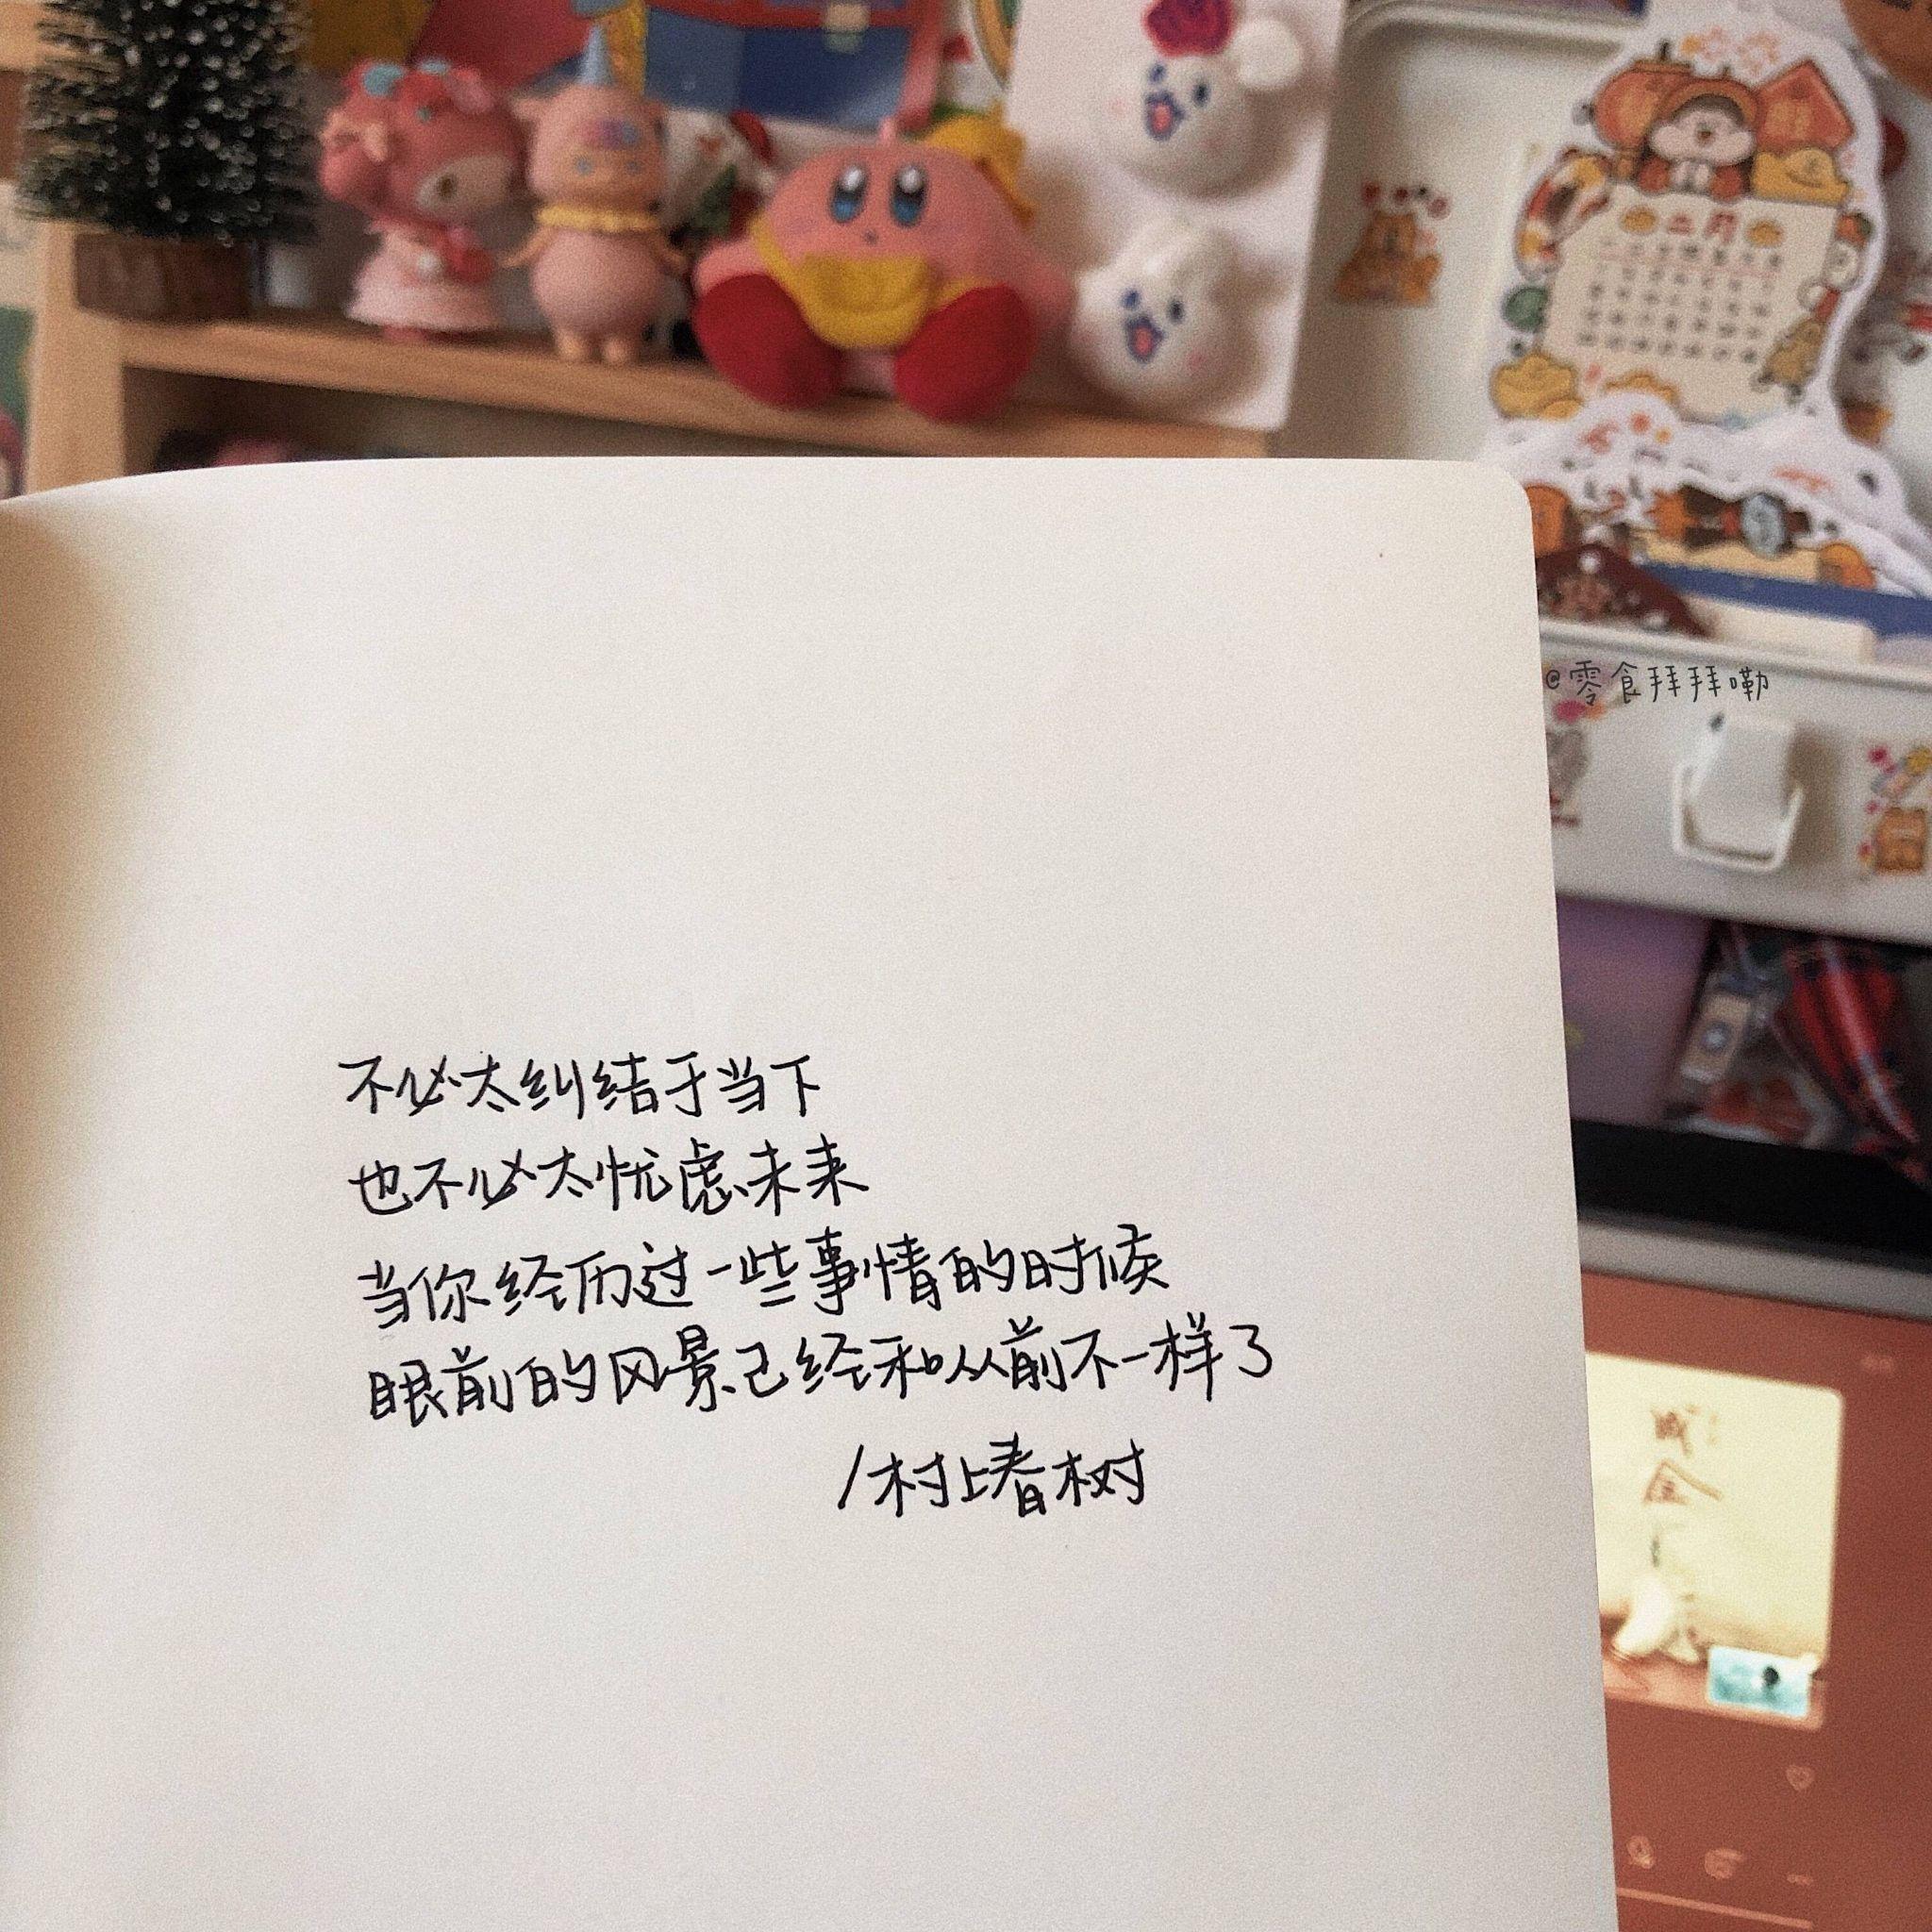 二月
@零食拜拜嘞
不必太纠结于当下
也不必太忧虑未来
当你经历过一些事情的时候
眼前的风景已经和从前不一样了
/村上春树